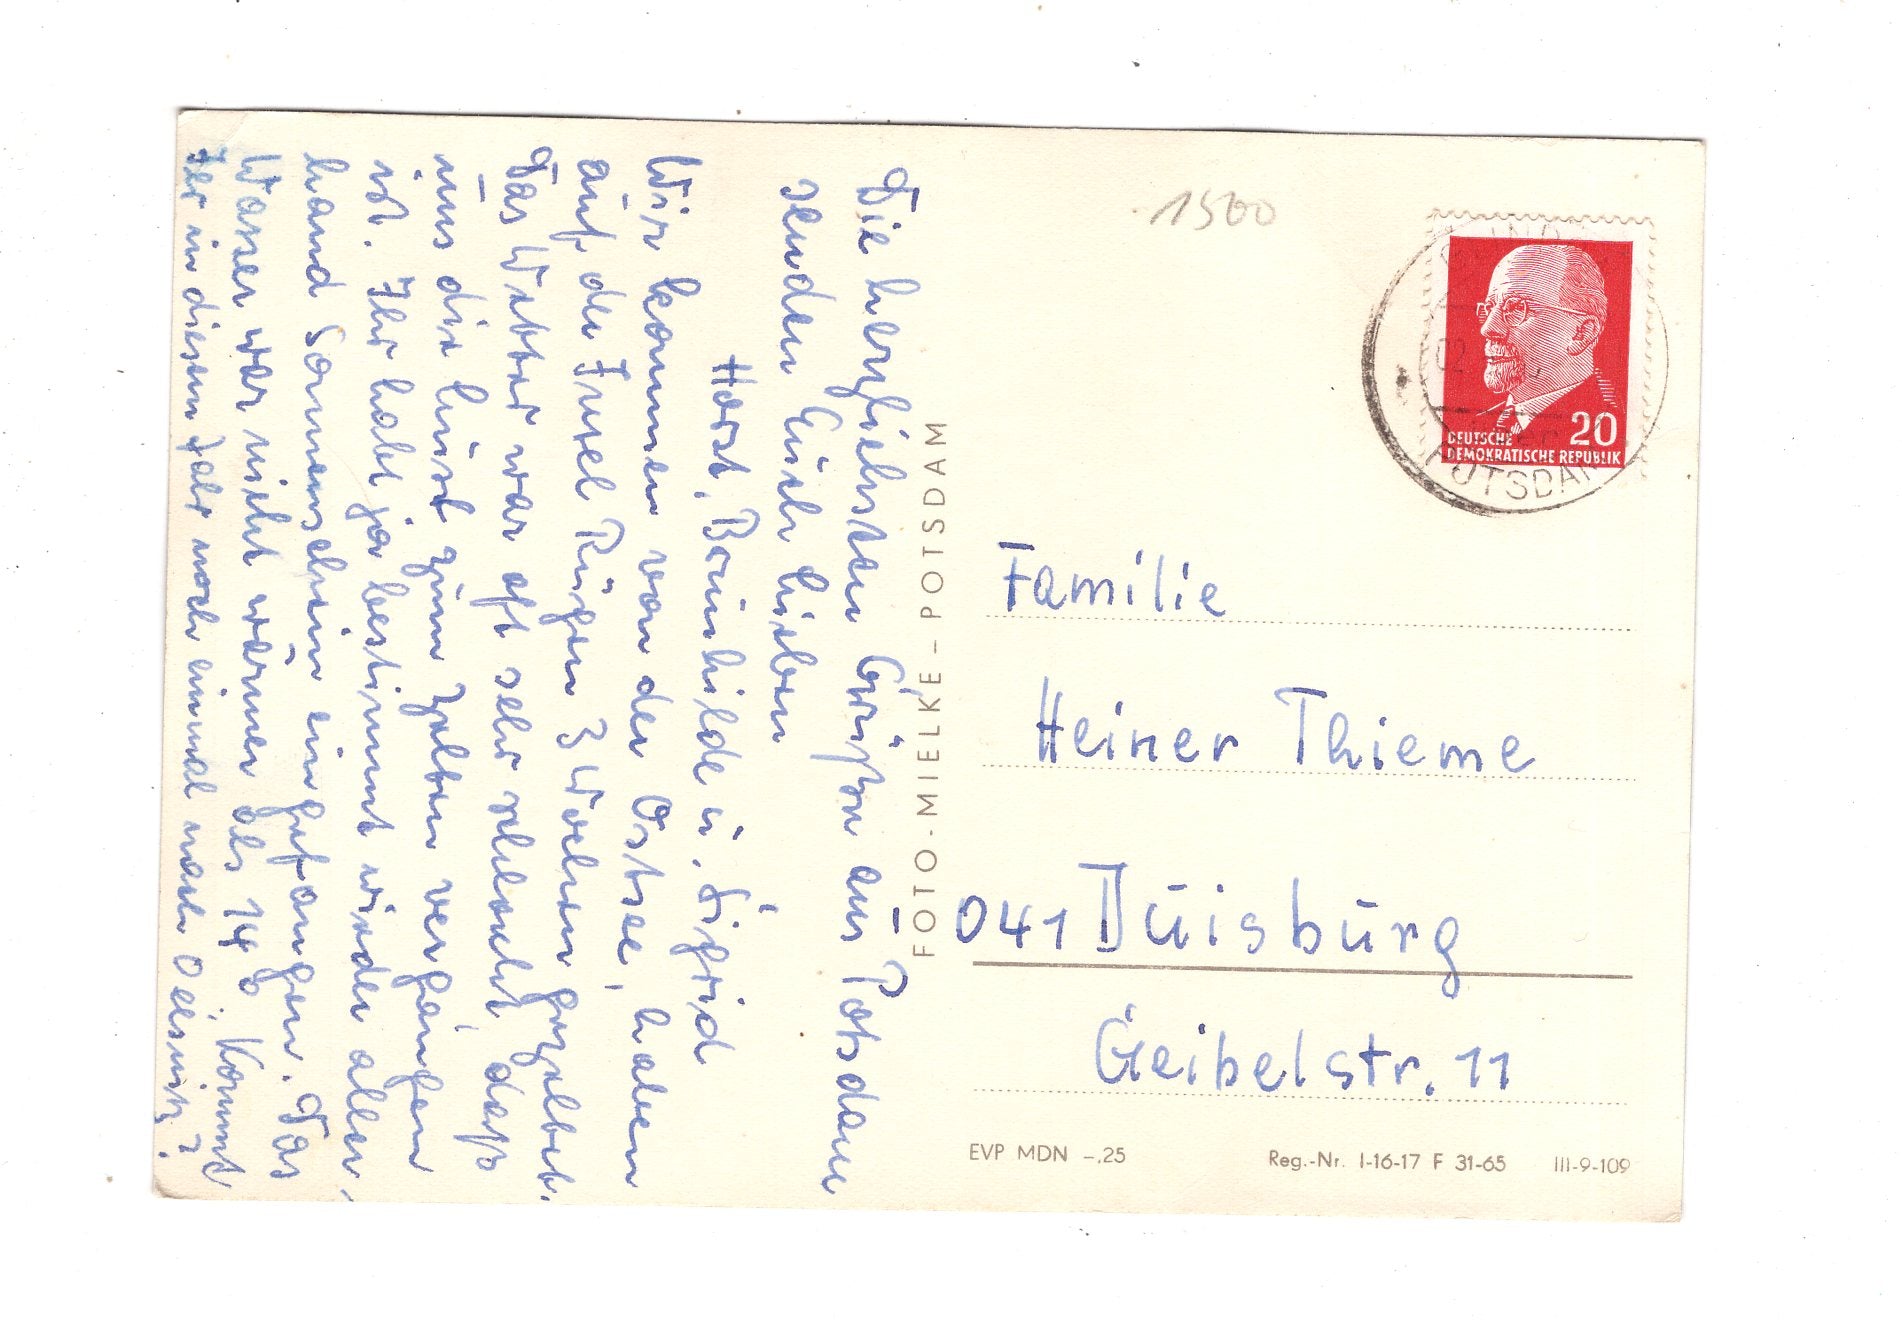 Die herzlichsten Grüße aus Potsdam
senden Euch lieben
Horst, Brunhilde u. Sigrid
Wir kommen von der Ostsee, haben
auf der Insel Rügen 3 Wochen gezeltet.
Das Wetter war oft sehr schlecht daß
uns die Lust zum Zelten vergangen
ist. Ihr habt ja bestimmt wieder aller-
hand Sonnenschein eingefangen. Das
Wasser war nicht wärmer als 14°. Kommt
Ihr in diesem Jahr noch einmal nach Oelsnitz?
FOTO-MIELKE-POTSDAM
1500
20
DEUTSCHE
DEMOKRATISCHE REPUBLIK
POTSDAM
Familie
Heiner Thieme
041 Duisburg
Geibelstr. 11
EVP MDN -.25
Reg.-Nr. I-16-17 F 31-65 III-9-109